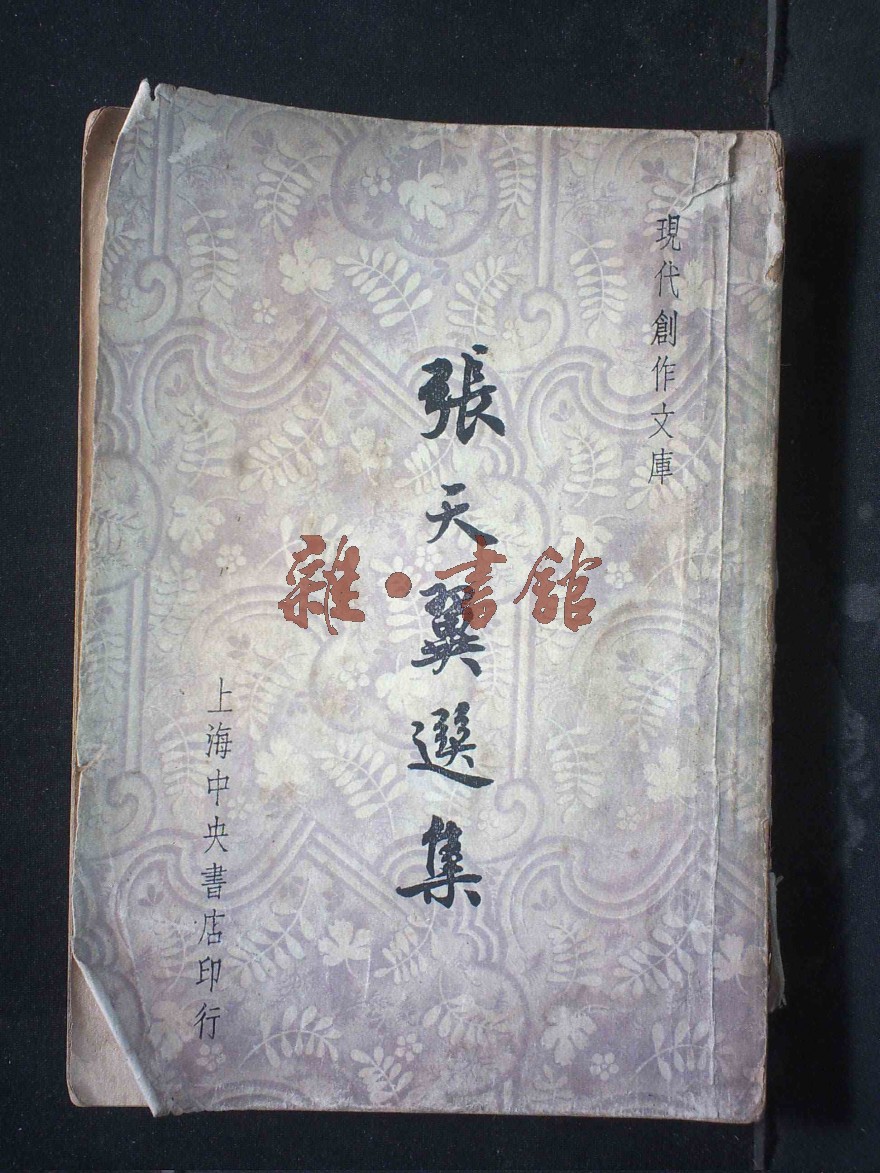 現代創作文庫
張天翼選集
上海中央書店印行
雜·書館